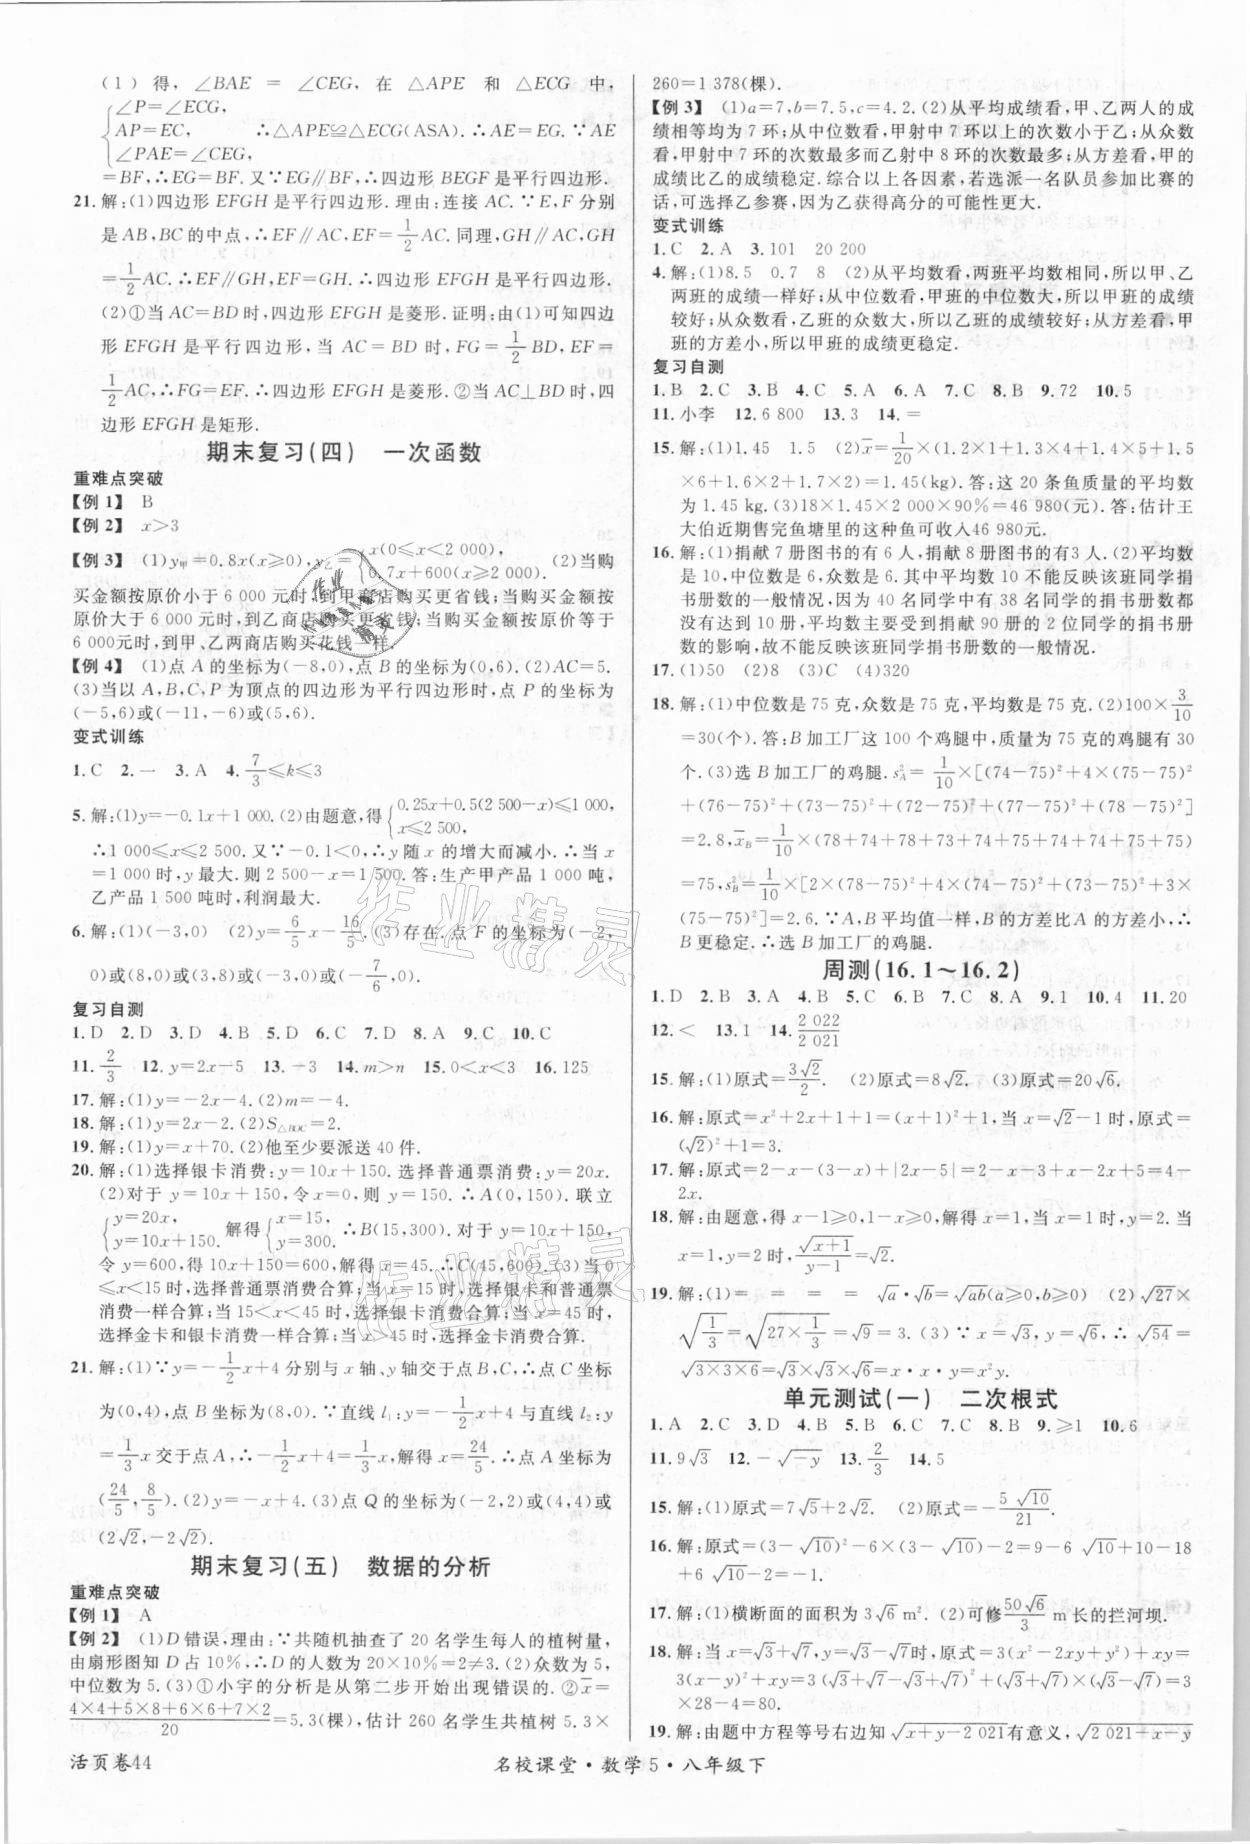 (1)得,∠BAE = ∠CEG,在 △APE 和 △ECG 中,
∠P=∠ECG,
AP=EC, ∴△APE≌△ECG(ASA).∴AE=EG.∵AE
∠PAE=∠CEG,
=BF,∴EG=BF.又∵EG∥BF,∴四边形 BEGF 是平行四边形.
21.解:(1)四边形 EFGH 是平行四边形.理由:连接 AC.∵E,F 分别
是 AB,BC 的中点,∴EF∥AC,EF=1/2AC.同理,GH∥AC,GH
=1/2AC.∴EF∥GH,EF=GH.∴四边形 EFGH 是平行四边形.
(2)①当 AC=BD 时,四边形 EFGH 是菱形.证明:由(1)可知四边
形 EFGH 是平行四边形,当 AC=BD 时,FG=1/2BD,EF=
1/2AC,∴FG=EF.∴四边形 EFGH 是菱形.②当 AC⊥BD 时,四
边形 EFGH 是矩形.
期末复习(四) 一次函数
重难点突破
【例 1】 B
【例 2】 x>3
【例 3】 (1)y甲=0.8x(x≥0),y乙={x(0≤x<2 000), 0.7x+600(x≥2 000). (2)当购
买金额按原价小于 6 000 元时,到甲商店购买更省钱;当购买金额按
原价大于 6 000 元时,到乙商店购买更省钱;当购买金额按原价等于
6 000元时,到甲、乙两商店购买花钱一样.
【例 4】 (1)点 A 的坐标为(-8,0),点 B 的坐标为(0,6).(2)AC=5.
(3)当以 A,B,C,P 为顶点的四边形为平行四边形时,点 P 的坐标为
(-5,6)或(-11,-6)或(5,6).
变式训练
1.C 2.一 3.A 4.7/3≤k≤3
5.解:(1)y=-0.1x+1 000.(2)由题意,得{0.25x+0.5(2 500-x)≤1 000, x≤2 500,
∴1 000≤x≤2 500.又∵-0.1<0,∴y 随 x 的增大而减小.∴当 x
=1 000 时,y最大.则 2 500-x=1 500.答:生产甲产品 1 000 吨,
乙产品 1 500 吨时,利润最大.
6.解:(1)(-3,0) (2)y=6/5x-16/5.(3)存在.点 F 的坐标为(-2,
0)或(8,0)或(3,8)或(-3,0)或(-7/6,0).
复习自测
1.D 2.D 3.D 4.B 5.D 6.B 7.D 8.A 9.C 10.C
11.2/3 12.y=2x-5 13.-3 14.m>n 15.0<x<3 16.125
17.解:(1)y=-2x-4.(2)m=-4.
18.解:(1)y=2x-2.(2)S△BOC=2.
19.解:(1)y=x+70.(2)他至少要派送 40 件.
20.解:(1)选择银卡消费:y=10x+150.选择普通票消费:y=20x.
(2)对于 y=10x+150,令 x=0,则 y=150.∴A(0,150).联立
{y=20x, y=10x+150. 解得{x=15, y=300. ∴B(15,300).对于 y=10x+150,
令 y=600,得 10x+150=600,解得 x=45.∴C(45,600).(3)当 0
≤x<15 时,选择普通票消费合算;当 x=15 时,选择银卡和普通票
消费一样合算;当 15<x<45 时,选择银卡消费合算;当 x=45 时,
选择金卡和银卡消费一样合算;当 x>45 时,选择金卡消费合算.
21.解:(1)∵y=-1/2x+4分别与 x 轴、y 轴交于点 B,C,∴点 C 坐标
为(0,4),点 B 坐标为(8,0).∵直线 l₁:y=-1/2x+4与直线 l₂:y=
1/3x 交于点 A,∴-1/2x+4=1/3x,解得 x=24/5.∴点 A 坐标为
(24/5,8/5).(2)y=-x+4.(3)点 Q 的坐标为(-2,2)或(4,4)或
(2√2,-2√2).
期末复习(五) 数据的分析
重难点突破
【例 1】 A
【例 2】 (1)D 错误,理由:∵共随机抽查了 20 名学生每人的植树量,
由扇形图知 D 占 10%,∴D 的人数为 20×10%=2≠3.(2)众数为 5,
中位数为 5.(3)①小宇的分析是从第二步开始出现错误的.②x̄=
(4×4+5×8+6×6+7×2)/20=5.3(棵),估计 260 名学生共植树 5.3×
260=1 378(棵).
【例 3】 (1)a=7,b=7.5,c=4.2.(2)从平均成绩看,甲、乙两人的成
绩相等均为 7 环;从中位数看,甲射中 7 环以上的次数小于乙;从众数
看,甲射中 7 环的次数最多而乙射中 8 环的次数最多;从方差看,甲的
成绩比乙的成绩稳定.综合以上各因素,若选派一名队员参加比赛的
话,可选择乙参赛,因为乙获得高分的可能性更大.
变式训练
1.C 2.A 3.101 20 200
4.解:(1)8.5 0.7 8 (2)从平均数看,两班平均数相同,所以甲、乙
两班的成绩一样好;从中位数看,甲班的中位数大,所以甲班的成绩
较好;从众数看,乙班的众数大,所以乙班的成绩较好;从方差看,甲
班的方差小,所以甲班的成绩更稳定.
复习自测
1.B 2.C 3.B 4.C 5.A 6.A 7.C 8.B 9.72 10.5
11.小李 12.6 800 13.3 14.=
15.解:(1)1.45 1.5 (2)x̄=1/20×(1.2×1+1.3×4+1.4×5+1.5
×6+1.6×2+1.7×2)=1.45(kg).答:这 20 条鱼质量的平均数
为 1.45 kg.(3)18×1.45×2 000×90%=46 980(元).答:估计王
大伯近期售完鱼塘里的这种鱼可收入46 980元.
16.解:(1)捐献 7 册图书的有 6 人,捐献 8 册图书的有3 人.(2)平均数
是 10,中位数是 6,众数是 6.其中平均数 10 不能反映该班同学捐
书册数的一般情况,因为 40 名同学中有 38 名同学的捐书册数都
没有达到 10 册,平均数主要受到捐献 90 册的 2 位同学的捐书册数
的影响,故不能反映该班同学捐书册数的一般情况.
17.(1)50 (2)8 (3)C (4)320
18.解:(1)中位数是 75 克,众数是 75 克,平均数是 75 克.(2)100×3/10
=30(个).答:B 加工厂这 100 个鸡腿中,质量为 75 克的鸡腿有 30
个.(3)选 B 加工厂的鸡腿.s²A=1/10×[(74-75)²+4×(75-75)²
+(76-75)²+(73-75)²+(72-75)²+(77-75)²+(78-75)²]
=2.8,x̄B=1/10×(78+74+78+73+74+75+74+74+75+75)
=75,s²B=1/10×[2×(78-75)²+4×(74-75)²+(73-75)²+3×
(75-75)²]=2.6.∵A,B 平均值一样,B 的方差比A 的方差小,∴
B 更稳定.∴选 B 加工厂的鸡腿.
周测(16.1～16.2)
1.D 2.B 3.A 4.B 5.C 6.B 7.C 8.A 9.1 10.4 11.20
12.< 13.1 14.2 022/2 021
15.解:(1)原式=3√2/2. (2)原式=8√2. (3)原式=20√6.
16.解:原式=x²+2x+1+1=(x+1)²+1,当 x=√2-1 时,原式=
(√2)²+1=3.
17.解:原式=2-x-(3-x)+|2x-5|=2-x-3+x-2x+5=4-
2x.
18.解:由题意,得 x-1≥0,1-x≥0,解得 x=1,当 x=1 时,y=2.当
x=1,y=2时,√(x+1)/(y-1)=√2.
19.解:(1)= = = = √a·√b=√ab(a≥0,b≥0) (2)√27×
√(1/3)=√(27×1/3)=√9=3.(3)∵x=√3,y=√6,∴√54=
√(3×3×6)=√3×√3×√6=x·x·y=x²y.
单元测试(一) 二次根式
1.A 2.C 3.D 4.B 5.B 6.C 7.C 8.B 9.≥1 10.6
11.9√3 12.-√-y 13.2/3 14.5
15.解:(1)原式=7√5+2√2. (2)原式=-5√10/21.
16.解:(1)原式=(3-√10)²-6×(3-√10)-2=9-6 √10+10-18
+6 √10-2=-1.
17.解:(1)横断面的面积为 3√6 m².(2)可修50√6/3 m 长的拦河坝.
18.解:当 x=√3+√7,y=√3-√7时,原式=3(x²-2xy+y²)+xy=
3(x-y)²+xy=3(√3+√7-√3+√7)²+(√3+√7)×(√3-√7)=3
×28-4=80.
19.解:由题中方程等号右边知√(x+y-2 021)有意义,√(2 021-x-y)
活页卷44
名校课堂·数学 5·八年级下
作业精灵
作业精灵